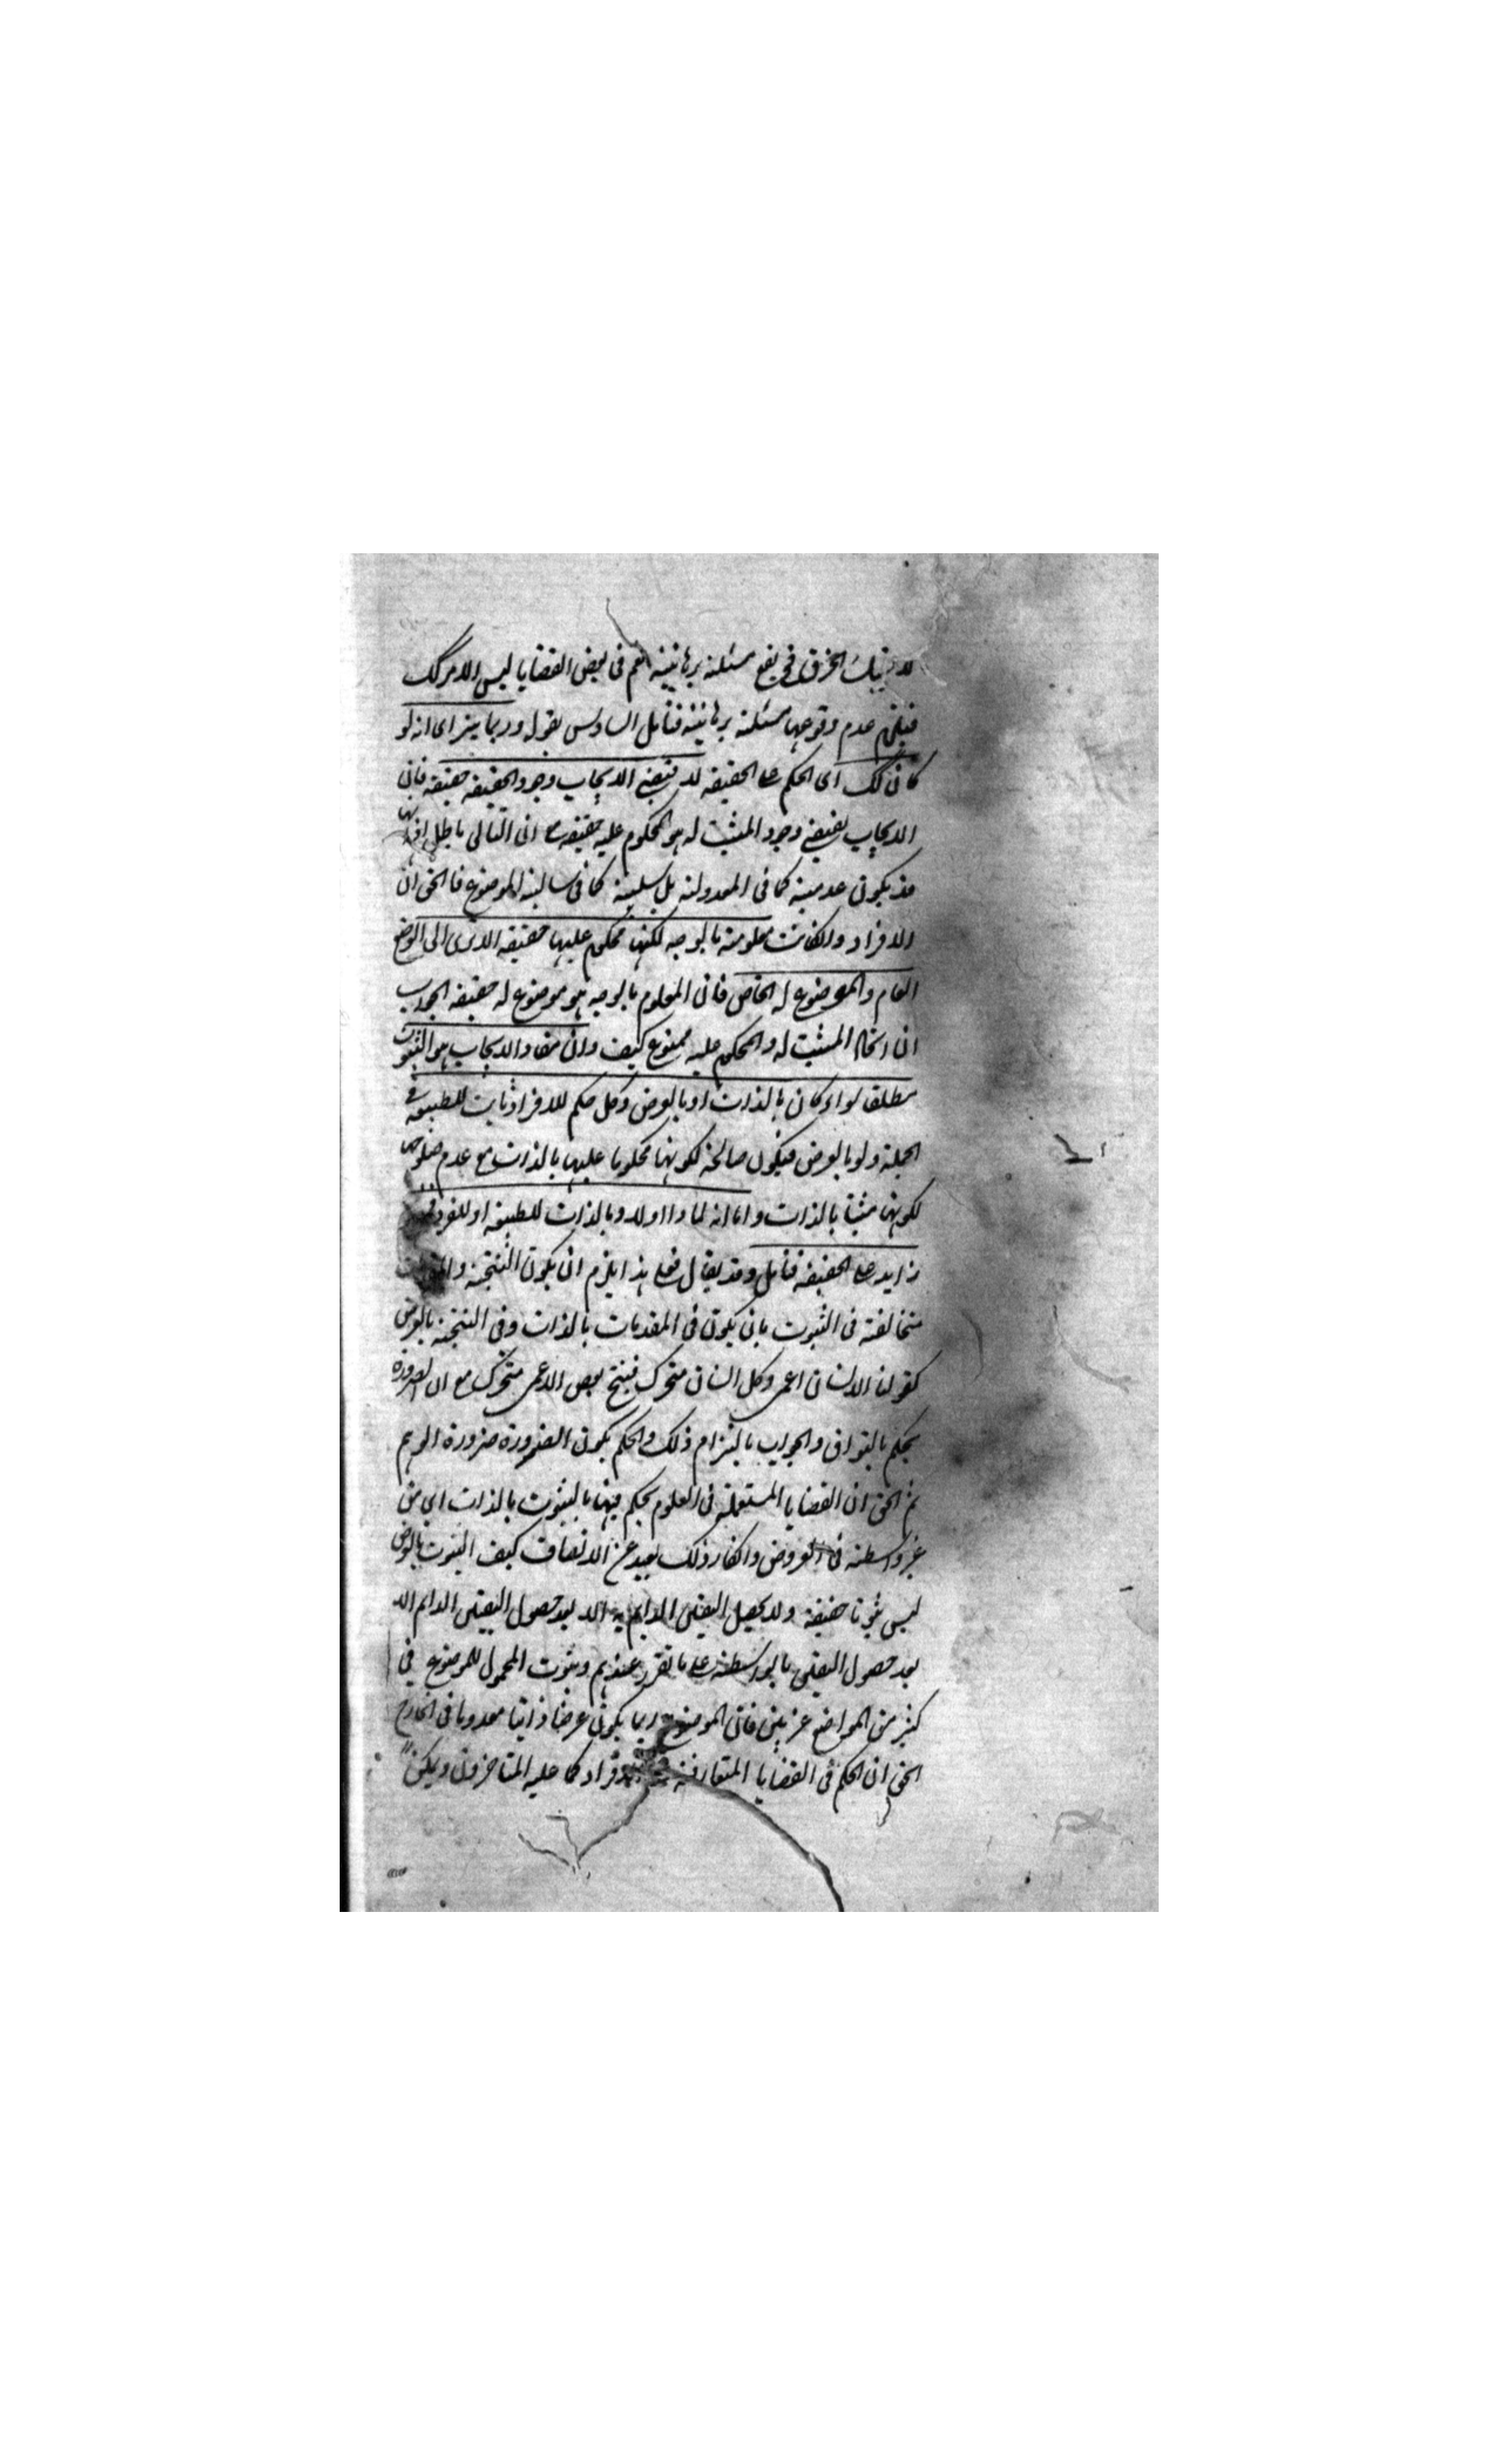 فيقع مسئلة برهانية نعم في بعض القضايا ليس الامر كك
فيلزم عدم وقوعها مسئلة برهانية فتأمل السادس بقوله وربما يتراى انه لو
كان كك اى الحكم على الحقيقة لاقتضى الايجاب وجود الحقيقة حقيقة فان
الايجاب يقتضي وجود المثبت له هو المحكوم عليه حقيقة مع ان التالى باطل
قد يكون عدمية كما فى المعدولة بل سلبية كما فى سالبة الموضوع فالحق ان
الافراد وان كانت معلومة بالوجه لكنها محكوم عليها حقيقة الا ترى الى الوضع
العام والموضوع له الخاص فان المعلوم بالوجه هو موضوع له حقيقة الجواب
ان اتحاد المثبت له والمحكوم عليه ممنوع كيف وان مفاد الايجاب هو الثبوت
مطلقا سواء كان بالذات او بالعرض وكل حكم للافراد ثابت للطبيعة في
الجملة ولو بالعرض فيكون صالحة لكونها محكوما عليها بالذات مع عدم صلوحها
لكونها مثبتا بالذات واما انه لماذا اولا وبالذات للطبيعة او للفرد
زايد على الحقيقة فتأمل وقد يقال فعلى هذا يلزم ان يكون النتيجة
متخالفة فى الثبوت بان يكون فى المقدمات بالذات وفى النتيجة بالعرض
كقولنا الانسان اعمى وكل انسان متحرك فينتج بعض الاعمى متحرك مع ان الضرورة
يحكم بالتوافق والجواب بالتزام ذلك والحكم بكون الضرورة ضرورة الوهم
ثم الحق ان القضايا المستعملة فى العلوم يحكم فيها بالثبوت بالذات اى من
غير واسطة فى العروض وانكار ذلك بعيد عن الانصاف كيف الثبوت بالعرض
ليس ثبوتا حقيقة ولا يحصل اليقين الدايم به الا بعد حصول اليقين الدايم الا
بعد حصول اليقين بالواسطة على ما تقرر عندهم وثبوت المحمول للموضوع فى
كثير من المواضع غير بين فان الموضوع ربما يكون عرضا ذاتيا معدوما فى الخارج
الحق ان الحكم فى القضايا المتعارفة كما عليه المتاخرون ويمكن